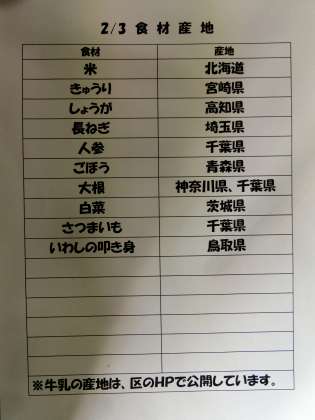 2/3 食 材 産 地
食材 産地
米 北海道
きゅうり 宮崎県
しょうが 高知県
長ねぎ 埼玉県
人参 千葉県
ごぼう 青森県
大根 神奈川県、千葉県
白菜 茨城県
さつまいも 千葉県
いわしの叩き身 鳥取県
※牛乳の産地は、区のHPで公開しています。